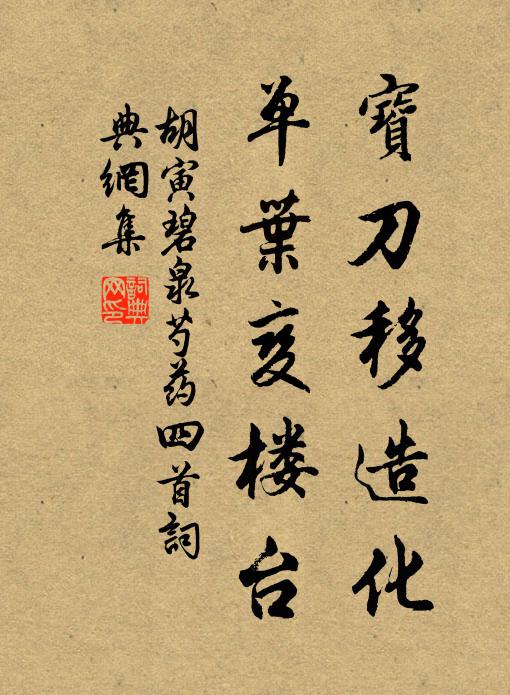 寶刀移造化
单葉变楼台
胡寅碧泉芍药四首詞
典網集
詞典网印